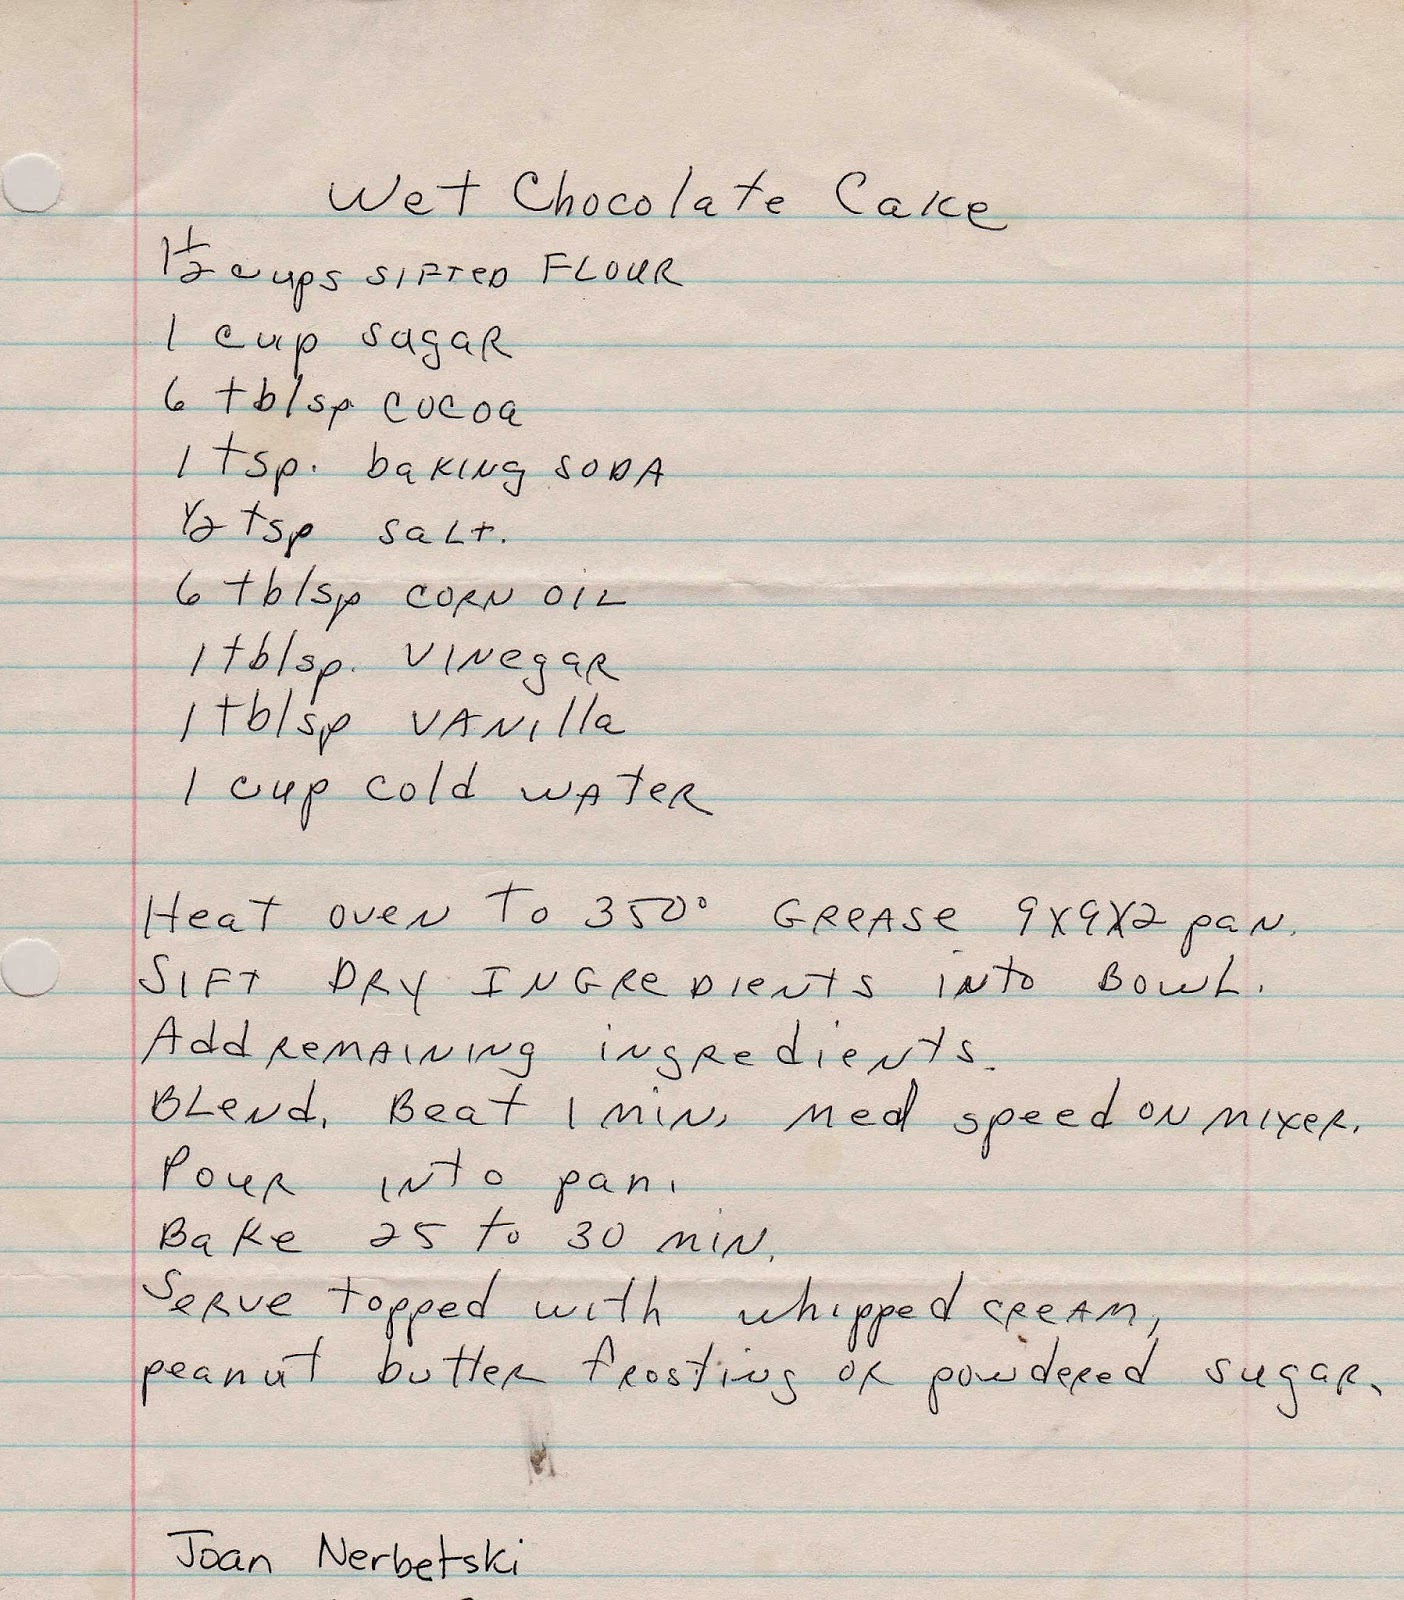 Wet Chocolate Cake
1 1/2 cups SIFTED FLOUR
1 cup sugar
6 tblsp. cocoa
1 tsp. baking SODA
1/2 tsp salt.
6 tblsp CORN OIL
1 tblsp. VINegar
1 tblsp VANilla
1 cup cold WATER
Heat oven To 350° GREASE 9X9X2 pan.
SIFT DRY INGREDIENTS INTO BOWL.
Add REMAINING ingredients.
BLend. Beat 1 min, med speed on mixer.
Pour into pan.
Bake 25 to 30 min.
Serve topped with whipped cream,
peanut butter frosting or powdered sugar.
Joan Nerbetski